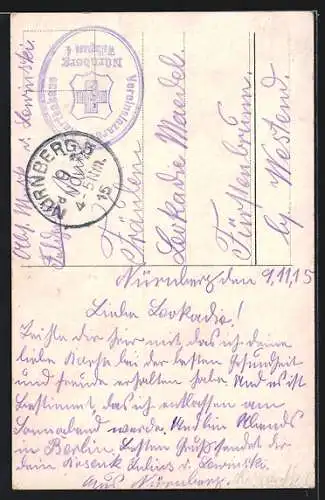 Vereinslazarett
Nürnberg
NÜRNBERG 5
9
4-5 Nm.
15
Fräulein
Leokadie
Fürstenbrunn
by Westend.
Nürnberg den 9.11.15
Liebe Leokadie!
Teihle dir hier mit das ich deine
liebe Karte bei der besten Gesundheit
und freude erhalten habe Und es ist
Bestimmt das ich entlassen am
Sonnabend werde. Und bin Abends
in Berlin. Besten Gruß sendet dir
dein Julius v. Lewinski.
aus Nürnberg.